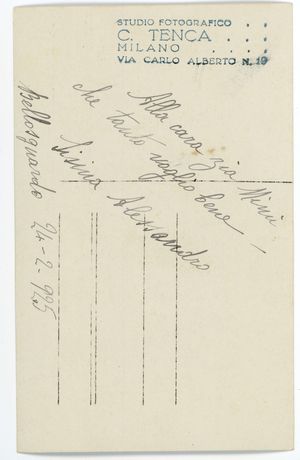 STUDIO FOTOGRAFICO . . .
C. TENCA . . .
MILANO . . . .
VIA CARLO ALBERTO N. 19
Alla cara zia Mimi
che tanto voglio bene –
Alessandro
Bellosguardo 24-2-925